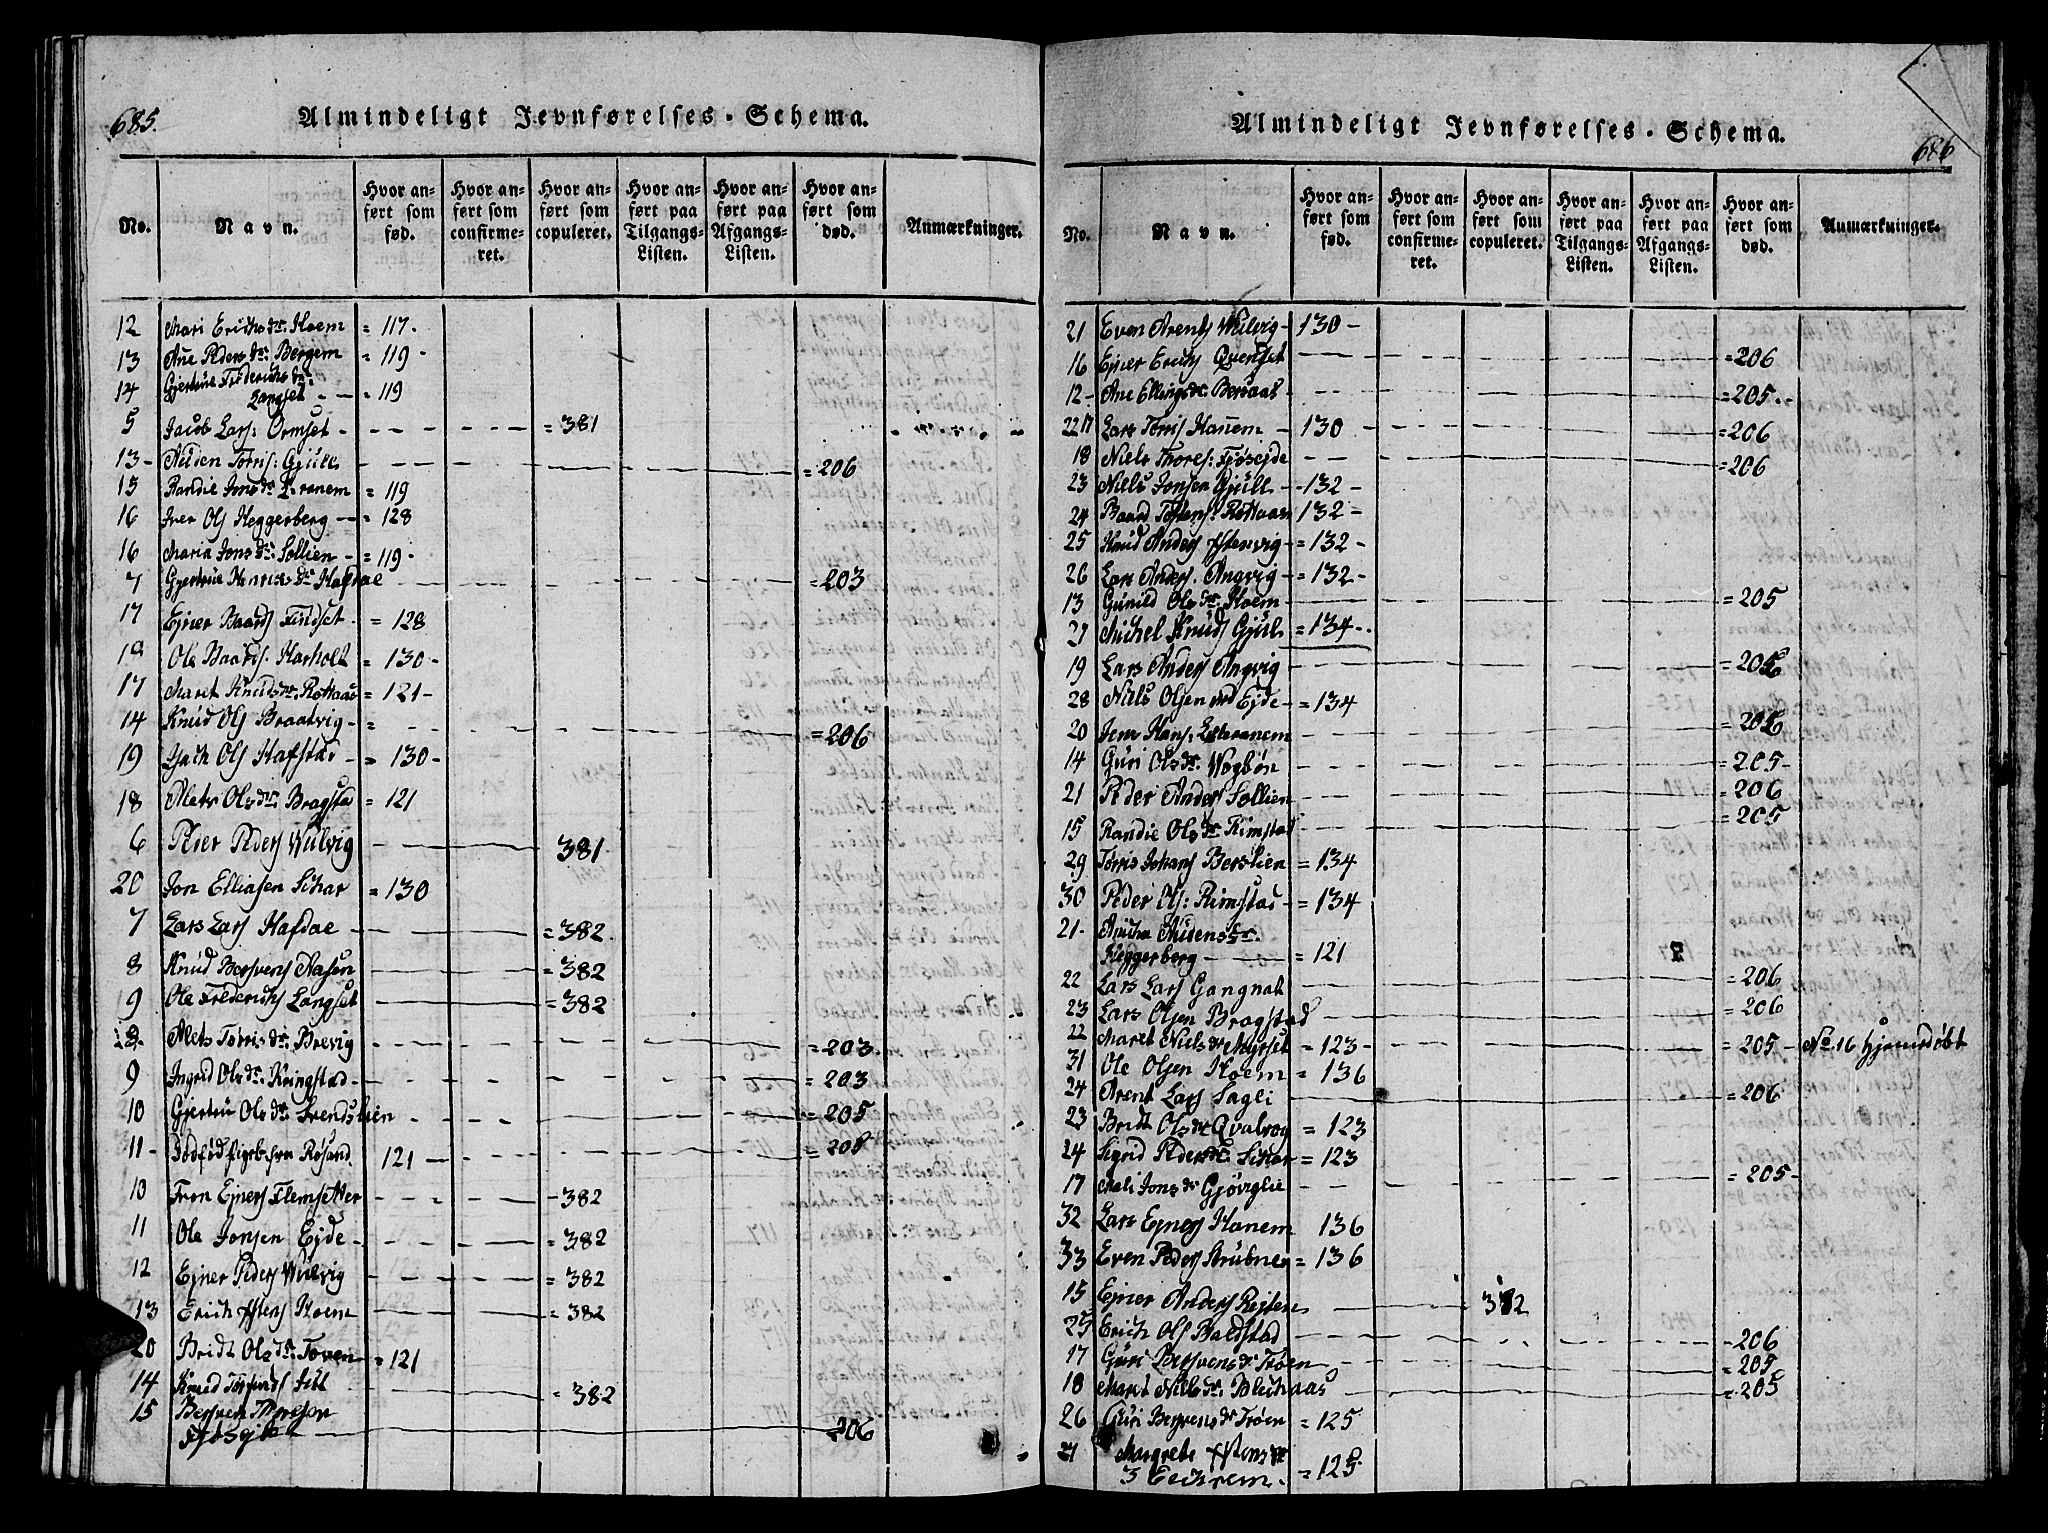 685.
Almindeligt Jevnførelses-Schema.
No. Navn. Hvor anført som fød. Hvor anført som confirmeret. Hvor anført som copuleret. Hvor anført paa Tilgangs-Listen. Hvor anført paa Afgangs-Listen. Hvor anført som død. Anmærkninger.
12 Mari Erichsdr. Hoem = 117.
13 Ane Pedersdr. Bergem = 119 -
14 Gjertrue Friderichsdr.
Langset - - = 119
5 Jacob Lars: Ormset = 381
13 - Auden Torris: Gjüll = 206
15 Randie Jonsdr. = 119
16 Iver Ols Heggerberg = 128
16 Maria Jonsdr. Sollien - = 119 -
7 Gjertrue Henrichsdr Hafdae = 203
17 Ejner Baards Findset = 128
Ole Baards. Harholt = 130 -
17 Maret Knudsdr. Rottaas = 121 -
14 Knud Ols Braatvig - = = 206
19 Ols Hafstad - = 130 -
18 Mets Olsdr. Bragstad = 121
6 Peder Peders Wulvig 381
20 Jon Elliasen Sthar = 130
7 Lars Lars Hafdae = 382
8 Knud Bersvens Aasen = 382
9 Ole Frederichs Langset = 382
8 Mets Torrisdr. Brevig = 203
9 Ingrid Olsdr. Kringstad = 203
10 Gjertru Olsdr. = 205
11 - Dødfød Pigeb. fra Røsand 121 = 208
10 Tron Ejners Flemsetter - 382
11 Ole Jonsen Eide = 382
12 Ejner Peders Wulvig = 382
13 Erich Hoem = 382
20 Bridt Olsdr. Toven = 121
14 Knud = 382
15 Bersven Thoresen
206
Almindeligt Jevnførelses-Schema.
686
No. Navn. Hvor anført som fød. Hvor anført som confirmeret. Hvor anført som copuleret. Hvor anført paa Tilgangs-Listen. Hvor anført paa Afgangs-Listen. Hvor anført som død. Anmærkninger.
21 Even Arents Wulvig - 130 -
16 Ejner Erichs Qvenset = 206
12 - Ane Ellingsdr. Bersaas = 205
22 17 Lars Torris Hanem - 130 = 206
18 Niels Thores: = 206
23 Niels Jonsen Gjüll - 132 -
24 Baard Rottaas 132 -
25 Knud Anders = 132 -
26 Lars Anders. Angvig = 132 -
13 Gunild Olsdr. Hoem = 205
27 Michel Knuds Gjül = 134 -
19 Lars Anders Angvig = 206
28 Niels Olsen ved Ejde = 134
20 Hans: = 206
14 Guri Olsdr. Wogbøn = 205 -
21 Peder Anders Sollien = 206
15 Randie Olsdr Rimstad = 205
29 Torris Johans Berslien = 134
30 Peder Ols: Rimstad = 134
21 - Audensdr.
Heggerberg = 121
22 Lars Lars Gangnat = 206
23 Lars Olsen Bragstad = 206
22 Maret Nielsdr Myrset = 123 - = 205 - No. 16 hjemedøbt
31 Ole Olsen Hoem = 136
24 Arent Lars Sagli = 206
23 Bridt Olsdr Qvalvog = 123
24 Sigrid Pedersdr. Sthar = 123
17 Mali Jonsdr Gjøviglie = 205 -
32 Lars Ejners Hanem 136
33 Even Peders Strubnes = 136
15 Ejner Anders Rejten 382
25 Erich Ols Boldstad - 206
17 Guri Bersvensdr Trøen = 205
18 Maret Nielsdr. = 205
26 Guri Bersvensdr Trøen = 125
Margrete
Eechrem. = 125